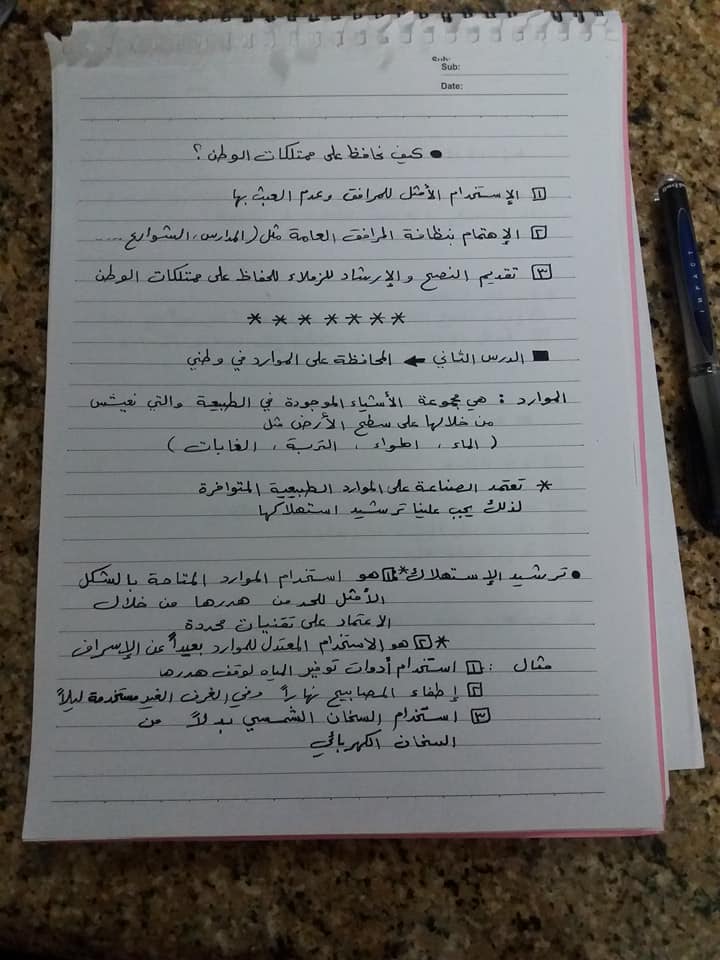 Sub:
Sub:
Date:
● كيف نحافظ على ممتلكات الوطن ؟
١ الإستخدام الأمثل للمرافق وعدم العبث بها
٢ الإهتمام بنظافة المرافق العامة مثل (المدارس، الشوارع .....
٣ تقديم النصح والإرشاد للزملاء للحفاظ على ممتلكات الوطن
* * * * * * *
■ الدرس الثاني ← المحافظة على الموارد في وطني
الموارد : هي مجموعة الأشياء الموجودة في الطبيعة والتي نعيش
من خلالها على سطح الأرض مثل
( الماء ، الهواء ، التربة ، الغابات )
* تعتمد الصناعة على الموارد الطبيعية المتوافرة
لذلك يجب علينا ترشيد استهلاكها
● ترشيد الإستهلاك * ١ هو استخدام الموارد المتاحة بالشكل
الأمثل للحد من هدرها من خلال
الاعتماد على تقنيات محددة
* ٢ هو الاستخدام المعتدل للموارد بعيداً عن الإسراف
مثال : ١ استخدام أدوات توفير المياه لوقف هدرها
٢ إطفاء المصابيح نهاراً وفي الغرف الغير مستخدمة ليلاً
٣ استخدام السخان الشمسي بدلاً من
السخان الكهربائي
IMPACT